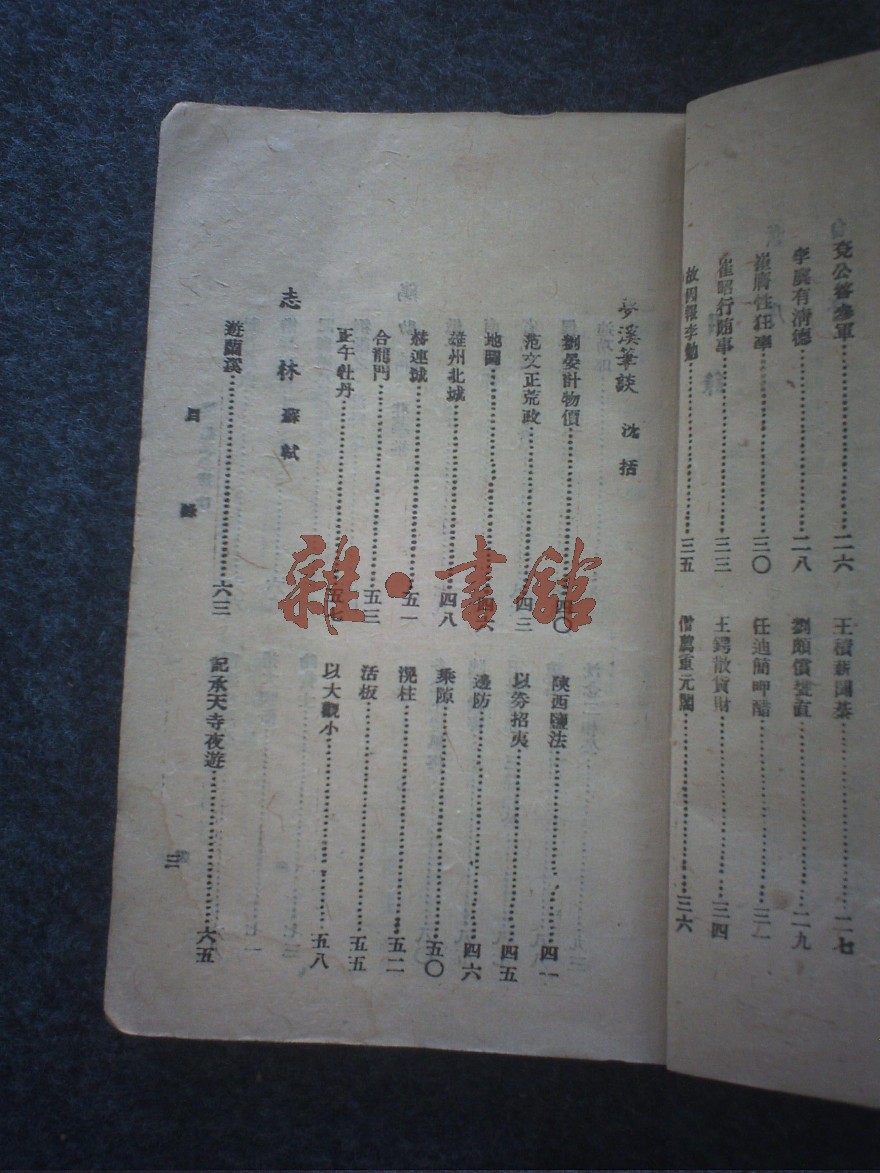 兗公答參軍……二六
王積薪圍棊……二七
李廙有清德……二八
劉頗償甕直……二九
崔膺性狂率……三〇
任迪簡呷醋……三一
崔昭行賄事……三三
王鍔散貨財……三四
故囚報李勉……三五
僧薦重元閣……三六
夢溪筆談 沈括
劉晏計物價……四〇
陝西鹽法……四一
范文正荒政……四三
以券招夷……四五
地圖……四六
邊防……四六
雄州北城……四八
乘隙……五〇
連城……五一
滉柱……五二
合龍門……五三
活板……五五
正午牡丹……五七
以大觀小……五八
志林 蘇軾
遊蘭溪……六三
記承天寺夜遊……六五
目錄
三
雜·書館